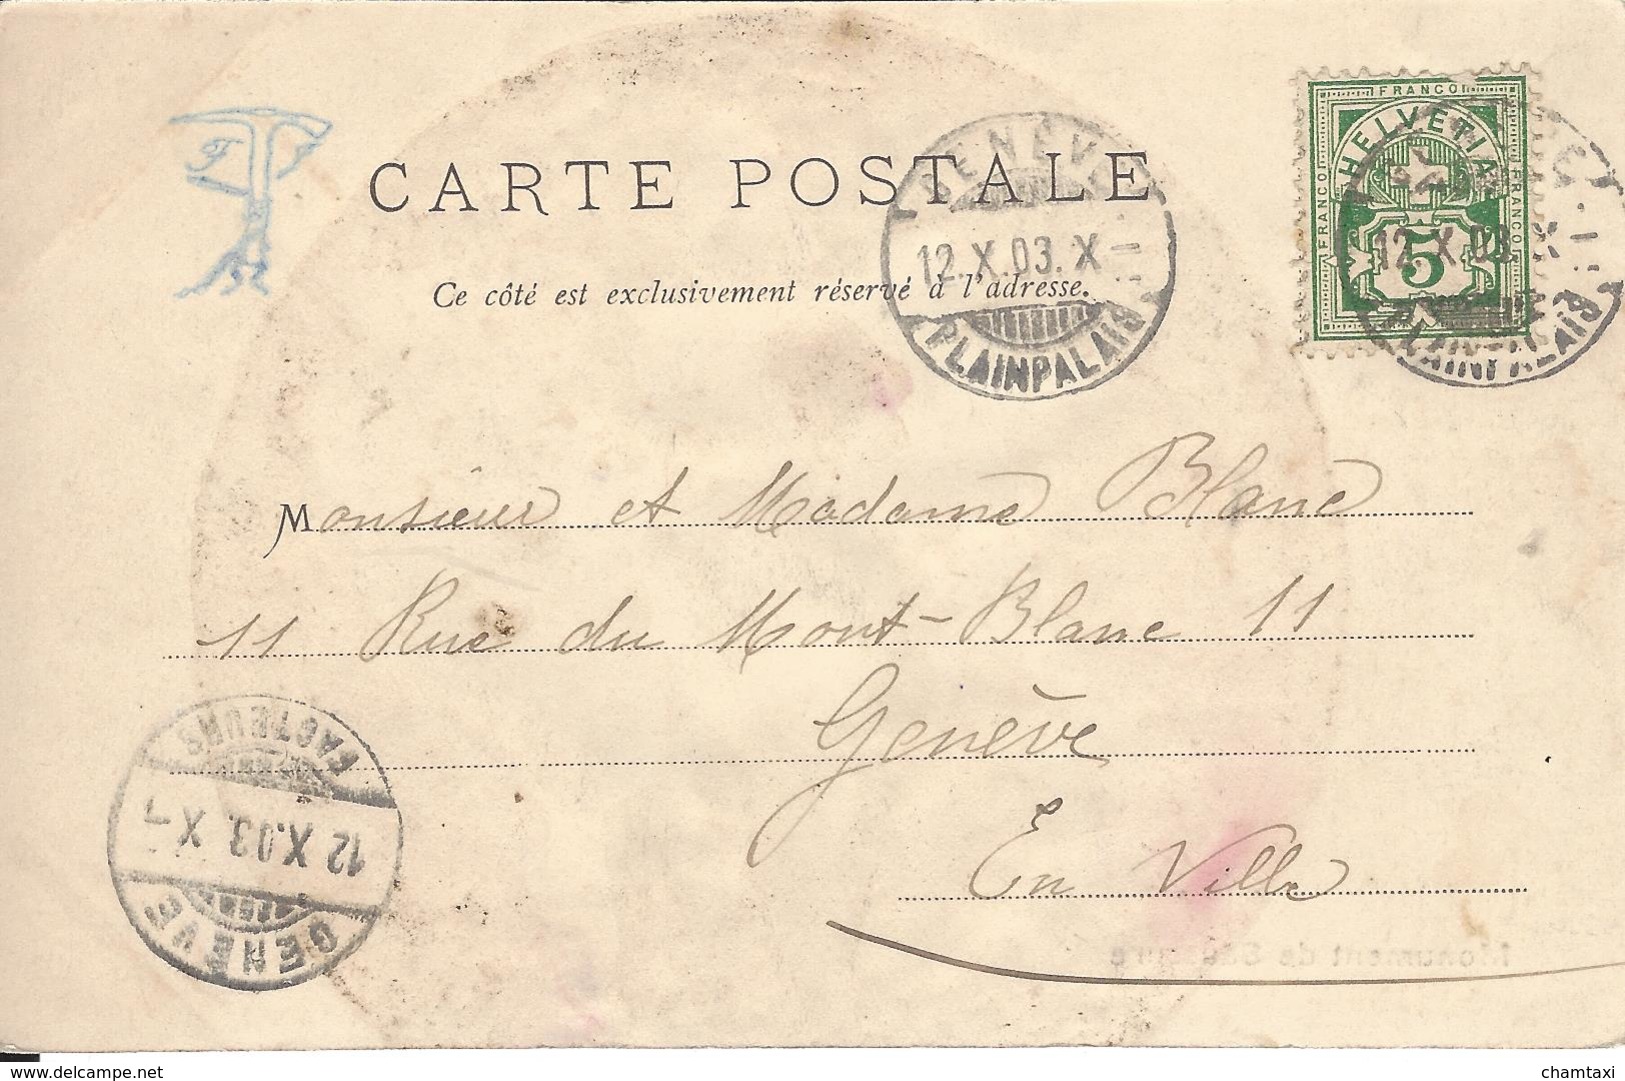 FRANCO
HELVETIA
FRANCO
FRANCO
5
CARTE POSTALE
GENÈVE
12.X.03.X
PLAINPALAIS
12.X.03.X
PLAINPALAIS
Ce côté est exclusivement réservé à l'adresse.
Monsieur et Madame Blanc
11 Rue du Mont-Blanc 11
Genève
En Ville
FACTEURS
12 X.03. X-7
GENÈVE
Monument de Saussure
delcampe.net
chamtaxi